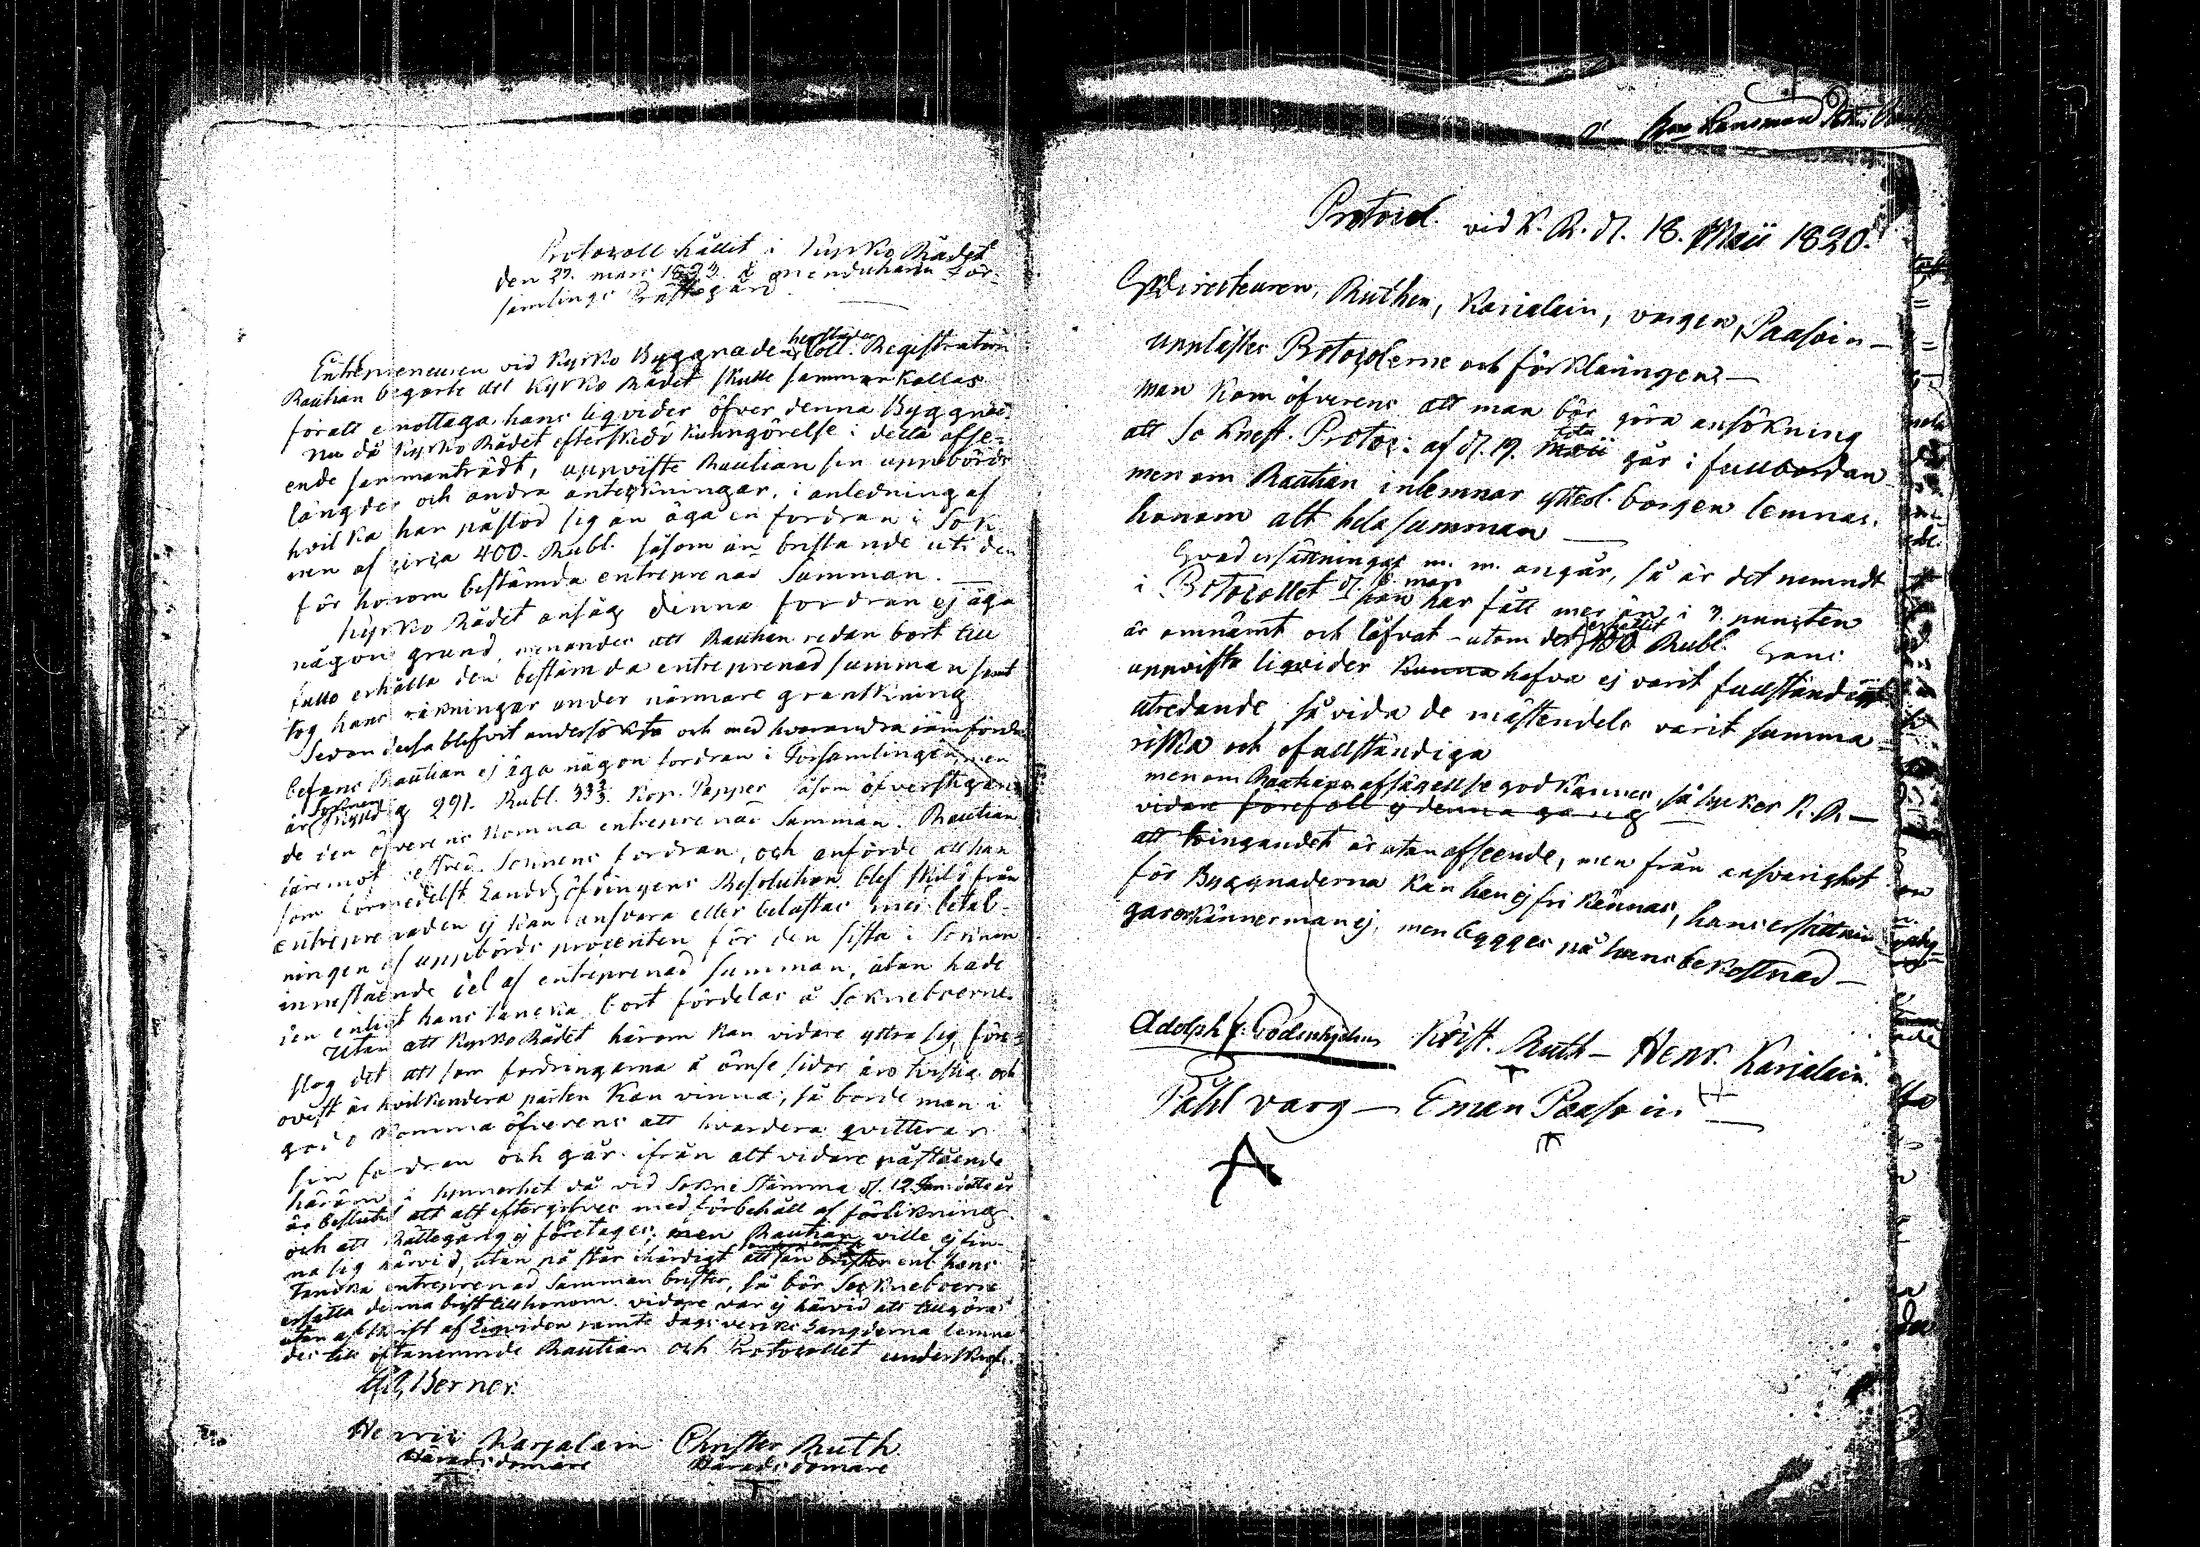 Protocoll hållit i Kyrko Rådet
den 27. mars 1823. å menduharju För-
samlings Prästegård.
Entrepreneuren vid Kyrko Byggnaden Coll. Registratorn
Rautian begärte att Kyrko Rådet skulle sammankallas
för att emottaga hans liqvider öfver denna Byggnad.
Nu då Kyrko Rådet efter skedd kunngörelse i detta afse-
ende sammanträdt, uppviste Rautian sin uppbörds
längder och andra anteckningar, i anledning af
hvilka han påstod sig än äga en fordran i Sok-
nen af circa 400. Rubl. såsom än bristande uti den
för honom bestämda entreprenad Summan. —
Kyrko Rådet ansåg denna fordran ej äga
någon grund, menandes att Rautian redan bort till
fullo erhålla den bestämda entreprenad summan samt
tog hans räkningar under närmare granskning
Sedan dessa blefvit undersökta och med hvarandra jämförda
befans Rautian ej äga någon fordran i Församlingen, men
är Soknen 291. Rubl. 33⅓. Kop. Papper såsom öfverstigan-
de den öfverens komna entreprenad Summan. Rautian
däremot Soknens fordran, och anförde att han
som förmedelst Landshöfdingens Resolution blef skild från
entreprenaden ej kan ansvara eller belastas med betal-
ningen af uppbörds procenten för den sista i Soknen
innestående del af entreprenad summan, utan hade
den enligt hans tanka bort fördelas å Sokneboerne.
Utan att Kyrko Rådet härom kan vidare yttra sig, före-
slog det att som fordringarna å ömse sidor äro tvistiga och
ovist är hvilkendera parten kan vinna, så borde man i
godo komma öfverens att hvardera qvitterar
sin fordran och går ifrån allt vidare påstående
härom i synnerhet då vid Sokne Stämma d. 12 Jan. detta år
är beslutit att allt eftergifves med förbehåll af förlikning
och att Rättegång ej företages; men Rautian ville ej fin-
na sig härvid, utan påstår ihärdigt att brister enl. hans
tanka entreprenad Summan brister, så bör Sokneboerne
ersätta denna brist till honom. vidare var ej härvid att tillgöra
utan afskrift af Liqviden samt dags verks Längderna lemna-
des till oftanemnde Rautian och Protocollet underskrefs.
Berner.
Henric Karjalain Christer Ruth
Häradsdomare Häradsdomare
Protocol vid K. R. d. 18. Maii 1820.
Ruthen, Karjalain, vargen, Paasoin —
upplästes Protocolerne och förklaringen —
man kom öfverens att man bör göra ansökning
att Soknest. Protoc: af d. 19. Maii går i fullbordan
men om Rautian inlemnar borgen lemnas
honom allt hela summan —
Hvad ersättningar m. m. angår, så är det nemndt
i Protocollet d. 8 mars han har fått mer än i 7. puncten
är omnämt och löfvat — utom det erhållit 100 Rubl. Hans
uppviste liqvider kunna hafva ej varit fullständigt
utredande, så vida de mästendels varit summa-
riska och ofullständiga
men om Rautians afsägellse godkännes, så tycker K. R. —
vidare förefoll ej denna gång
att tvingandet är utan afseende, men från answarighet
för Byggnaderna kan han ej fri kännas, hans ersättnin-
gar erkänner man ej, men bygges på hans bekostnad —
Adolph Krist. Ruth — Henr. Karjalain.
Påhl varg — Eman Paasoin